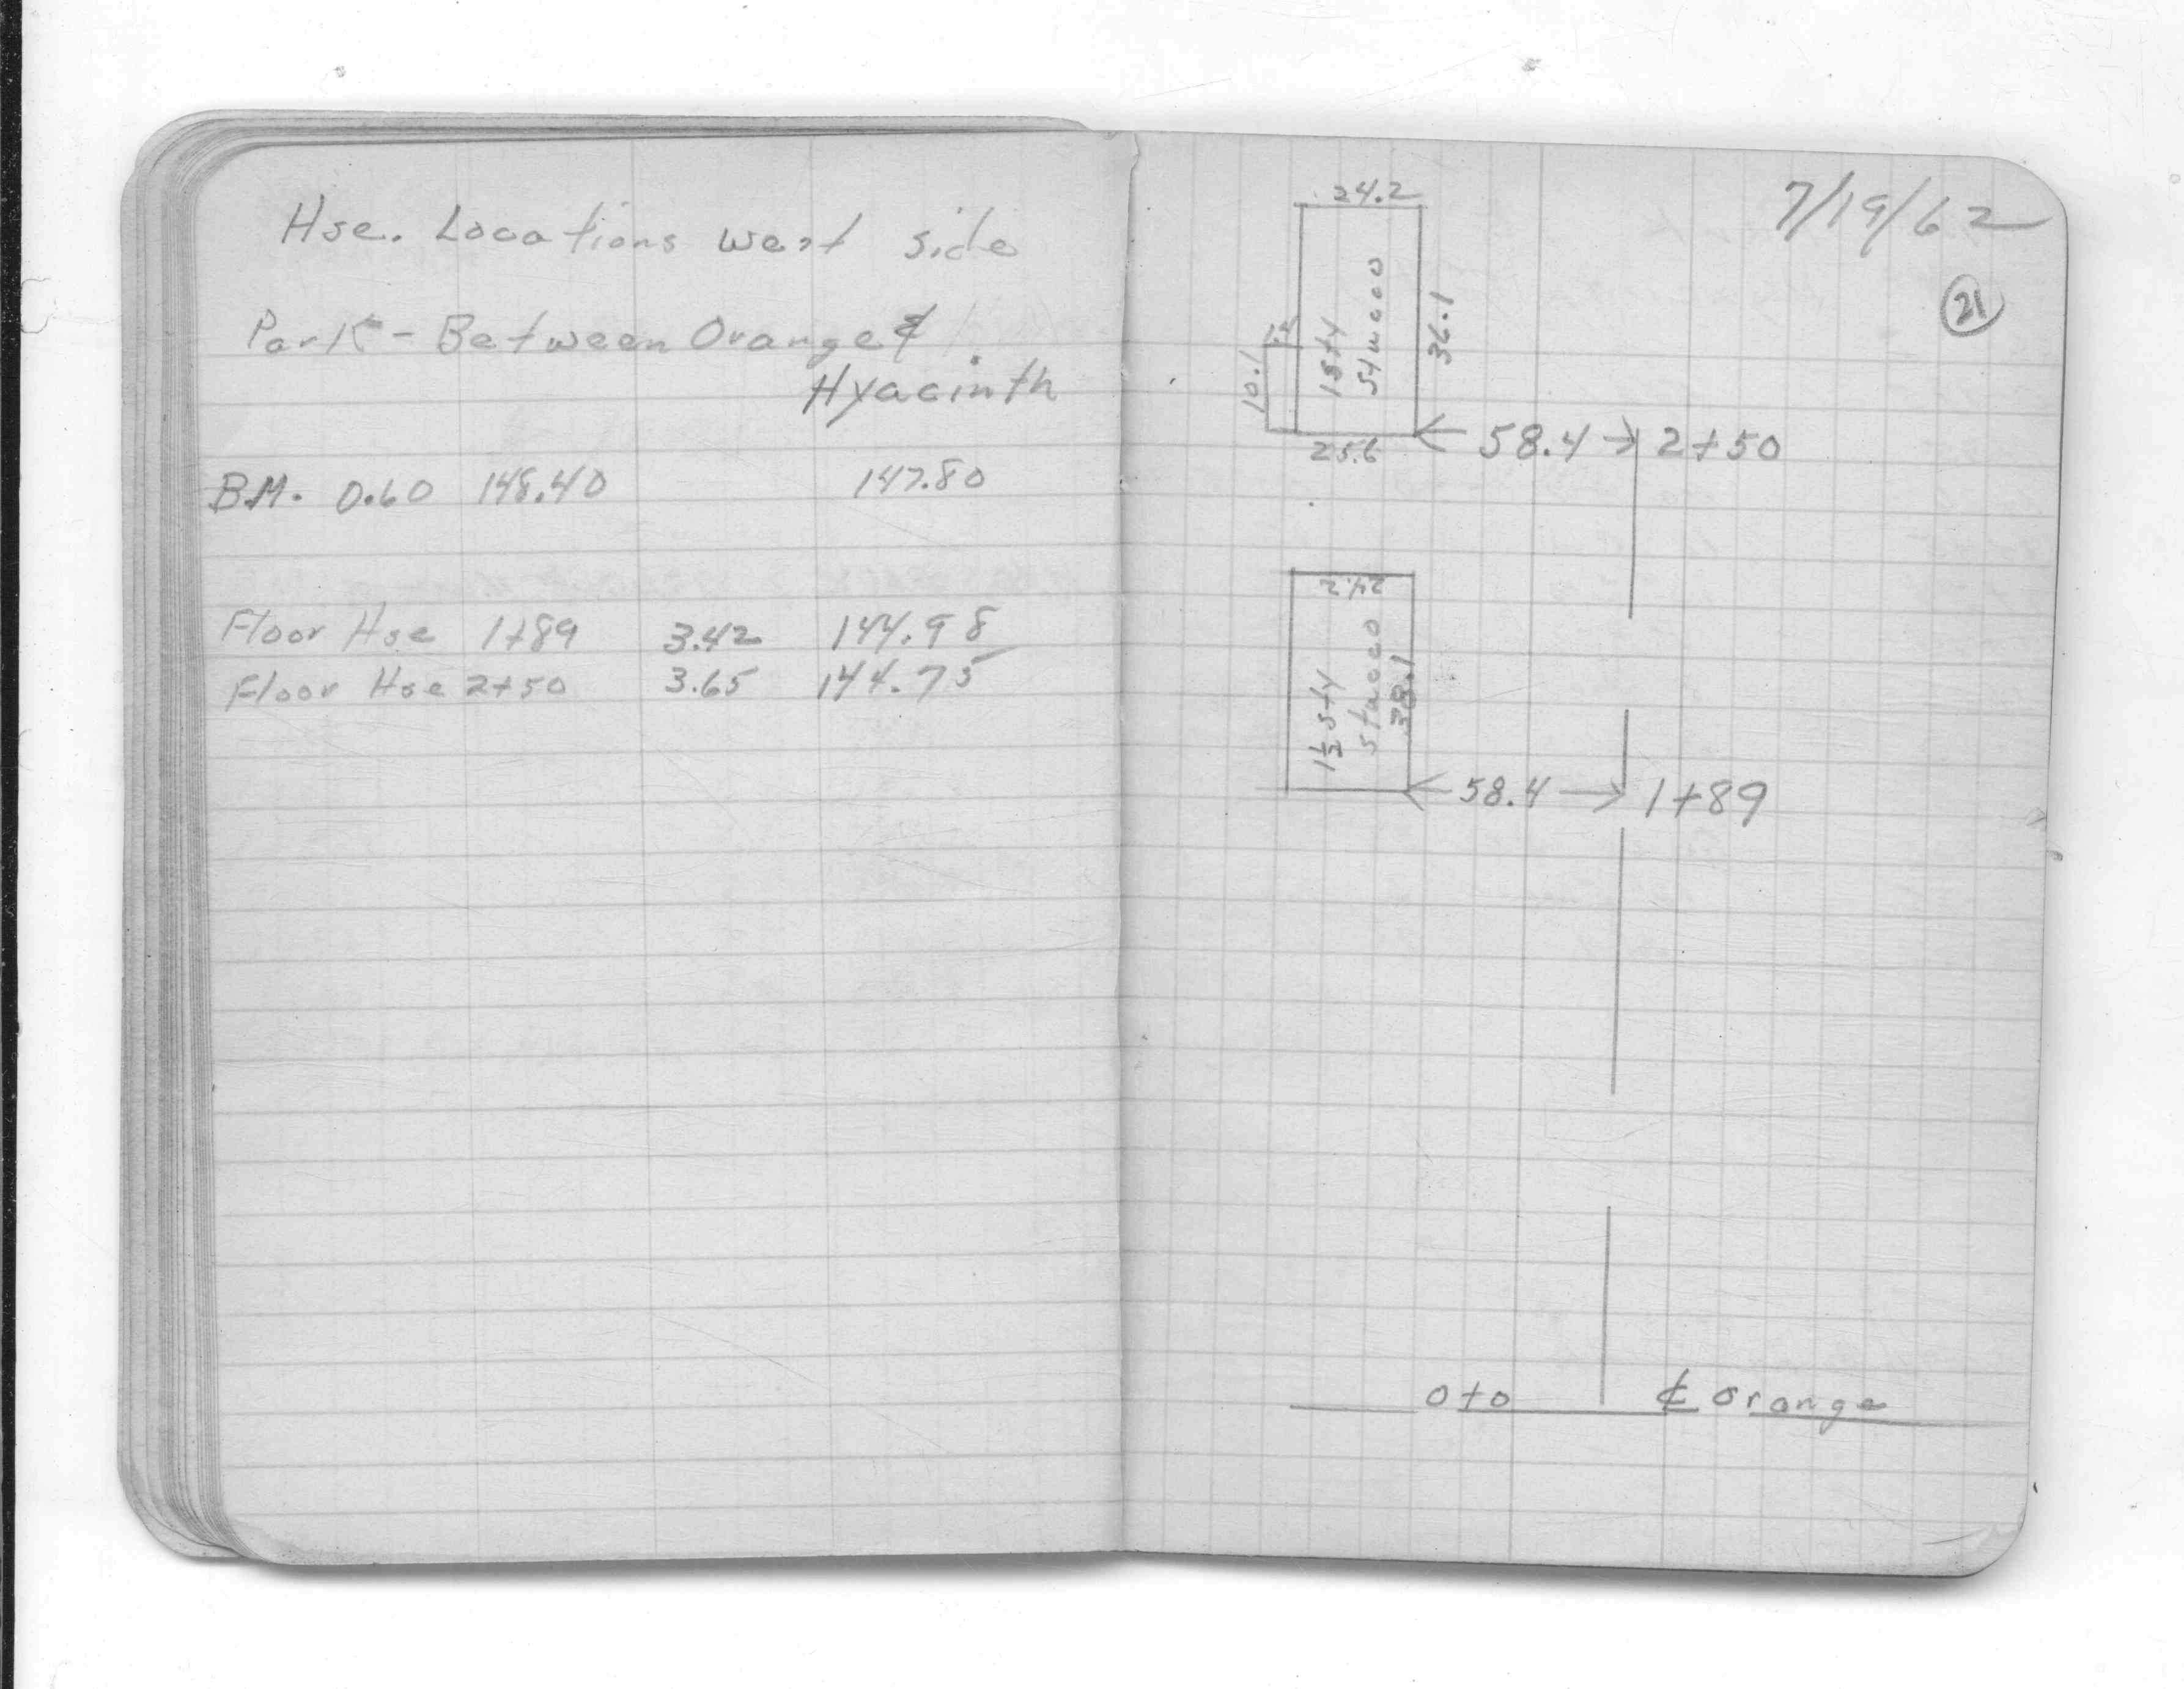 Hse. Locations west side
Park - Between Orange &
Hyacinth
B.M. 0.60 148.40 147.80
Floor Hse 1+89 3.42 144.98
Floor Hse 2+50 3.65 144.75
7/19/62
21
24.2
1 sty
stucco
36.1
10.1
25.6
58.4 2+50
24.2
1½ sty
stucco
38.1
58.4 1+89
0+0 ℄ Orange